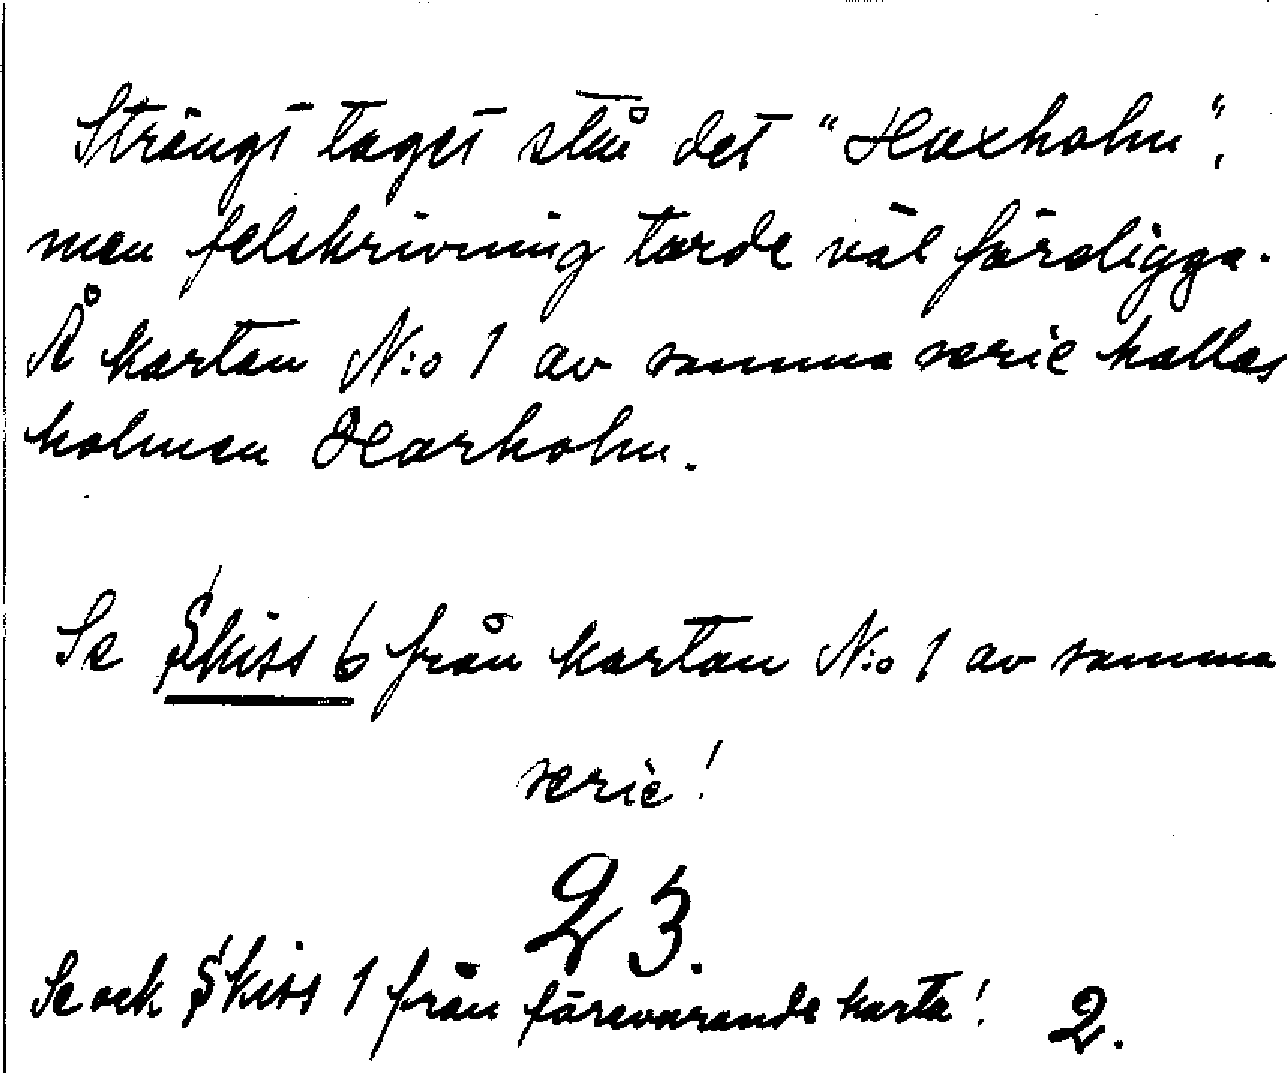 Strängt taget står det "Haxholm",
men felskrivning torde väl föreligga.
Å kartan N:o 1 av samma serie kallas
holmen Harholm.
Se Skiss 6 från kartan N:o 1 av samma
serie!
23.
Se ock Skiss 1 från förevarande karta! 2.